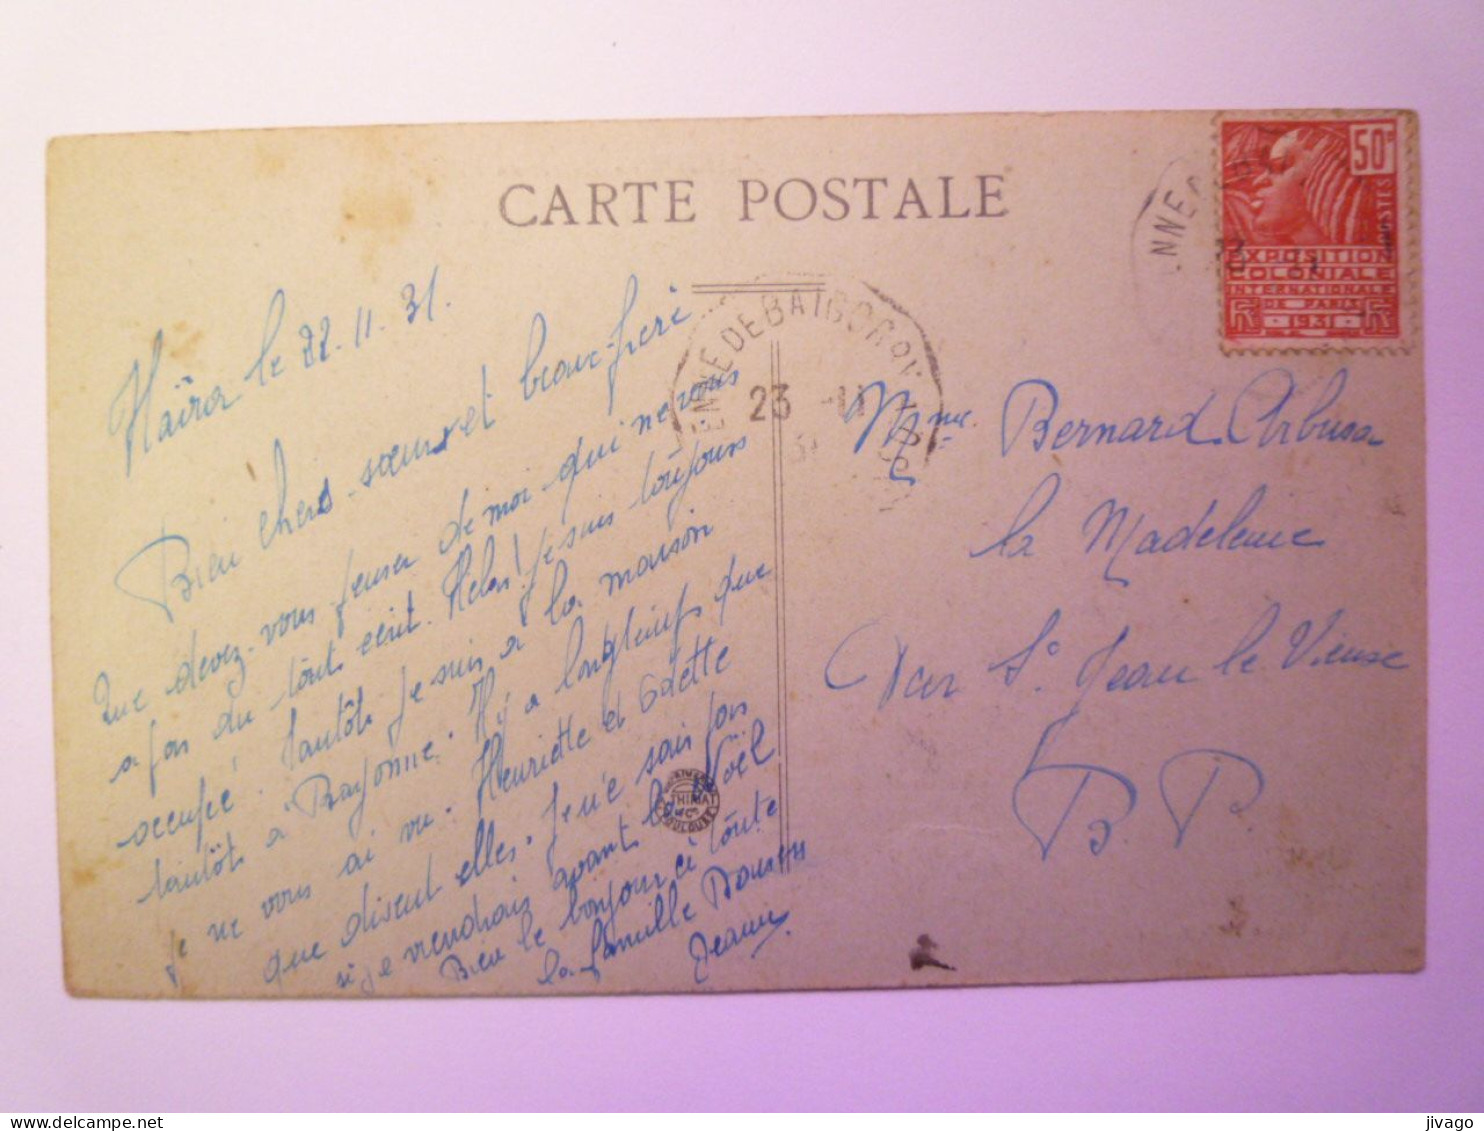 CARTE POSTALE
le 22.11.31.
Bien chers sœurs et beau-frère
Que devez-vous penser de moi qui ne vous
a pas du tout écrit. Helas! Je suis toujours
occupé. Tantôt je suis à la maison
tantôt à Bayonne. Il y a longtemps que
je ne vous ai vu. Henriette et Odette
que disent elles. Je ne sais pas
si je viendrais avant la Noël
Bien le bonjour à toute
la famille
Jeanne
ENNE DE BAIGORRY
23 -11
31
THIRIAT
TOULOUSE
NNE
50c
POSTES
EXPOSITION
COLONIALE
INTERNATIONALE
DE PARIS
1931
Mme Bernard Arbusa
la Madeleine
Par St. Jean le Vieux
B. P.
delcampe.net
jivago